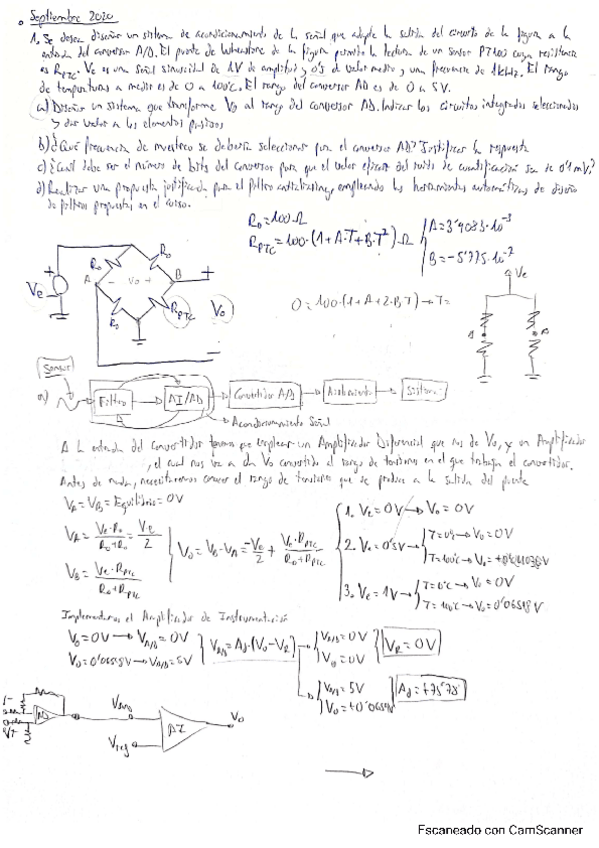 Septiembre 2020
1. Se desea diseñar un sistema de acondicionamiento de la señal que adapte la salida del circuito de la figura a la
entrada del conversor A/D. El puente de Wheatstone de la figura permite la lectura de un sensor PT100 cuya resistencia
es RPTC. Ve es una señal sinusoidal de 1V de amplitud y 0'5 de valor medio, y una frecuencia de 1kHz. El rango
de temperaturas a medir es de 0 a 100ºC. El rango del conversor AD es de 0 a 5V.
a) Diseñar un sistema que transforme Vo al rango del conversor AD. Indicar los circuitos integrados seleccionados
y dar valor a los elementos pasivos
b) ¿Qué frecuencia de muestreo se debería seleccionar para el conversor AD? Justificar la respuesta
c) ¿Cuál debe ser el número de bits del conversor para que el valor eficaz del ruido de cuantificación sea de 0'1 mV?
d) Realizar una propuesta justificada para el filtro antialiasing, empleando las herramientas automáticas de diseño
de filtros propuestas en el curso.
Ro = 100 Ω
RPTC = 100·(1+A·T+B·T²) Ω
A = 3'9083·10⁻³
B = -5'775·10⁻⁷
Ve
Ro
Ro
A
- Vo +
B
Ro
RPTC
Vo
0 = 100·(1+A+2·B·T) → T=
Ve
A
Sensor
a)
Filtro
AI/AD
Convertidor A/D
Aislamiento
Sistema
Acondicionamiento Señal
A la entrada del convertidor tenemos que emplear un Amplificador Diferencial que nos de Vo, y un Amplificador
, el cual nos va a dar Vo convertido al rango de tensiones en el que trabaja el convertidor.
Antes de nada, necesitaremos conocer el rango de tensiones que se produce a la salida del puente
VA = VB = Equilibrio = 0V
VA = Ve·Ro / Ro+Ro = Ve / 2
VB = Ve·RPTC / Ro+RPTC
Vo = VB - VA = -Ve / 2 + Ve·RPTC / Ro+RPTC
1. Ve = 0V → Vo = 0V
2. Ve = 0'5V
T = 0ºC → Vo = 0V
T = 100ºC → Vo =
3. Ve = 1V
T = 0ºC → Vo = 0V
T = 100ºC → Vo = 0'06598V
Implementamos el Amplificador de Instrumentación
Vo = 0V → VA/D = 0V
Vo = 0'06598V → VA/D = 5V
VA/D = Ad·(Vo - VR)
VA/D = 0V
Vo = 0V
VR = 0V
VA/D = 5V
Vo = +0'06598V
Ad = +75'78
AD
Vreg
AI
Vo
Escaneado con CamScanner